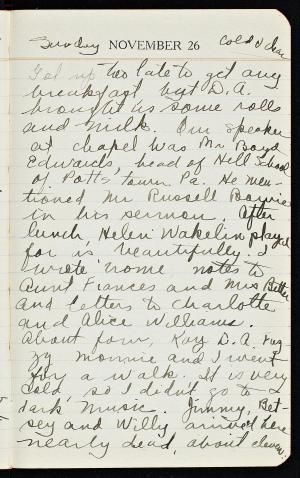 Sunday NOVEMBER 26 Cold & clear
Got up too late to get any
breakfast but D.A.
brought us some rolls
and milk. Our speaker
at chapel was Mr Boyd
Edwards, head of Hill School
of Potts, town Pa. He men-
tioned Mr Russell Bowie
in his sermon. After
lunch, Helen Wakelin played
for us beautifully. I
wrote some notes to
Aunt Frances and Mrs
and letters to Charlotte
and Alice Williams.
About four, Kay D.A.
and I went
for a walk. It is very
cold, so I didn't go to
dark music. Jimmy, Bet-
sey and Willy arrived here
nearly dead, about eleven.